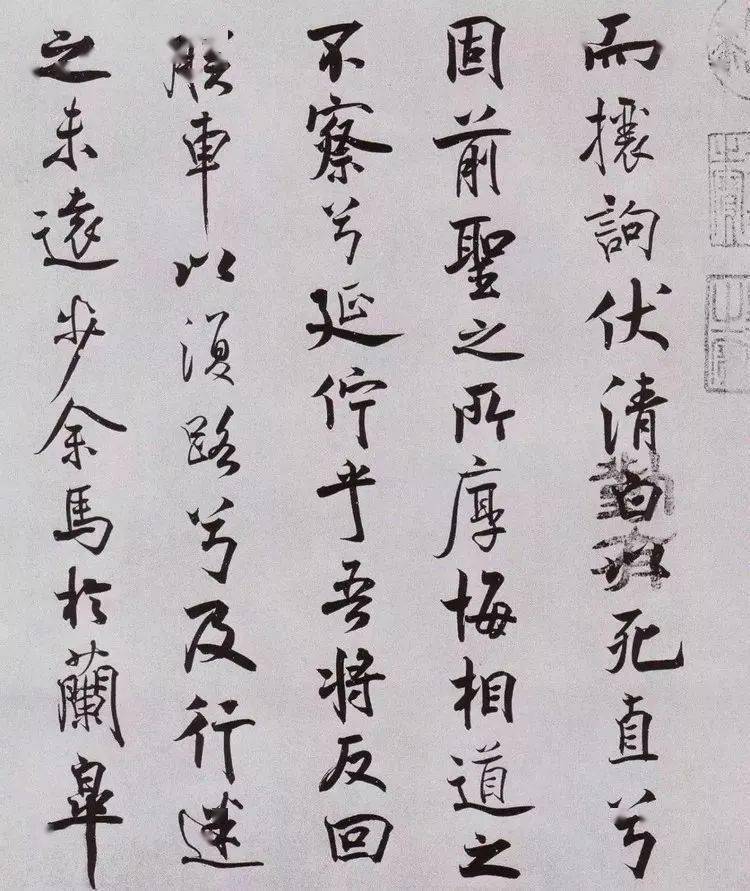 而攘訽伏清白以死直兮
固前聖之所厚悔相道之
不察兮延佇乎吾將反回
朕車以復路兮及行迷
之未遠步余馬於蘭皋